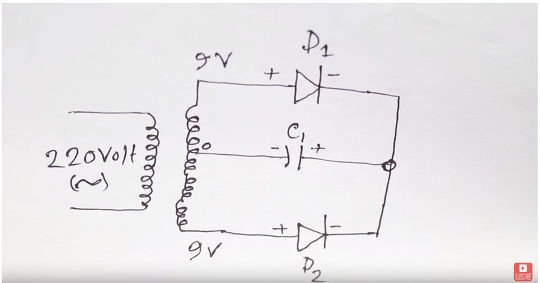 9V
D1
+ -
220Volt
(~)
0
- C1 +
+ -
9V
D2